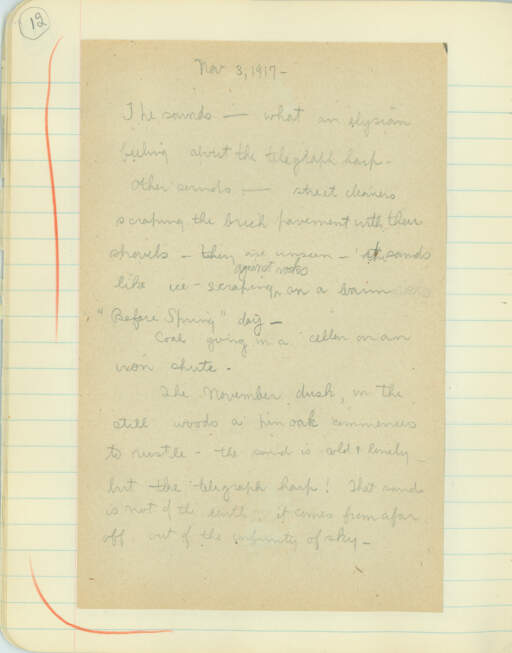 12
Nov 3, 1917 -
The sounds — what an elysian
feeling about the telegraph harp -
Other sounds — street cleaners
scraping the brick pavement with their
shovels - they are unseen - it sounds
against rocks
like ice - scraping on a barim
"Before Spring" day —
Coal going in a cellar on an
iron chute .
The November dusk, in the
still woods a pin oak commences
to rustle - the sound is cold & lonely -
but the telegraph harp ! That sound
is not of the earth - it comes from afar
off - out of the infinity of sky —